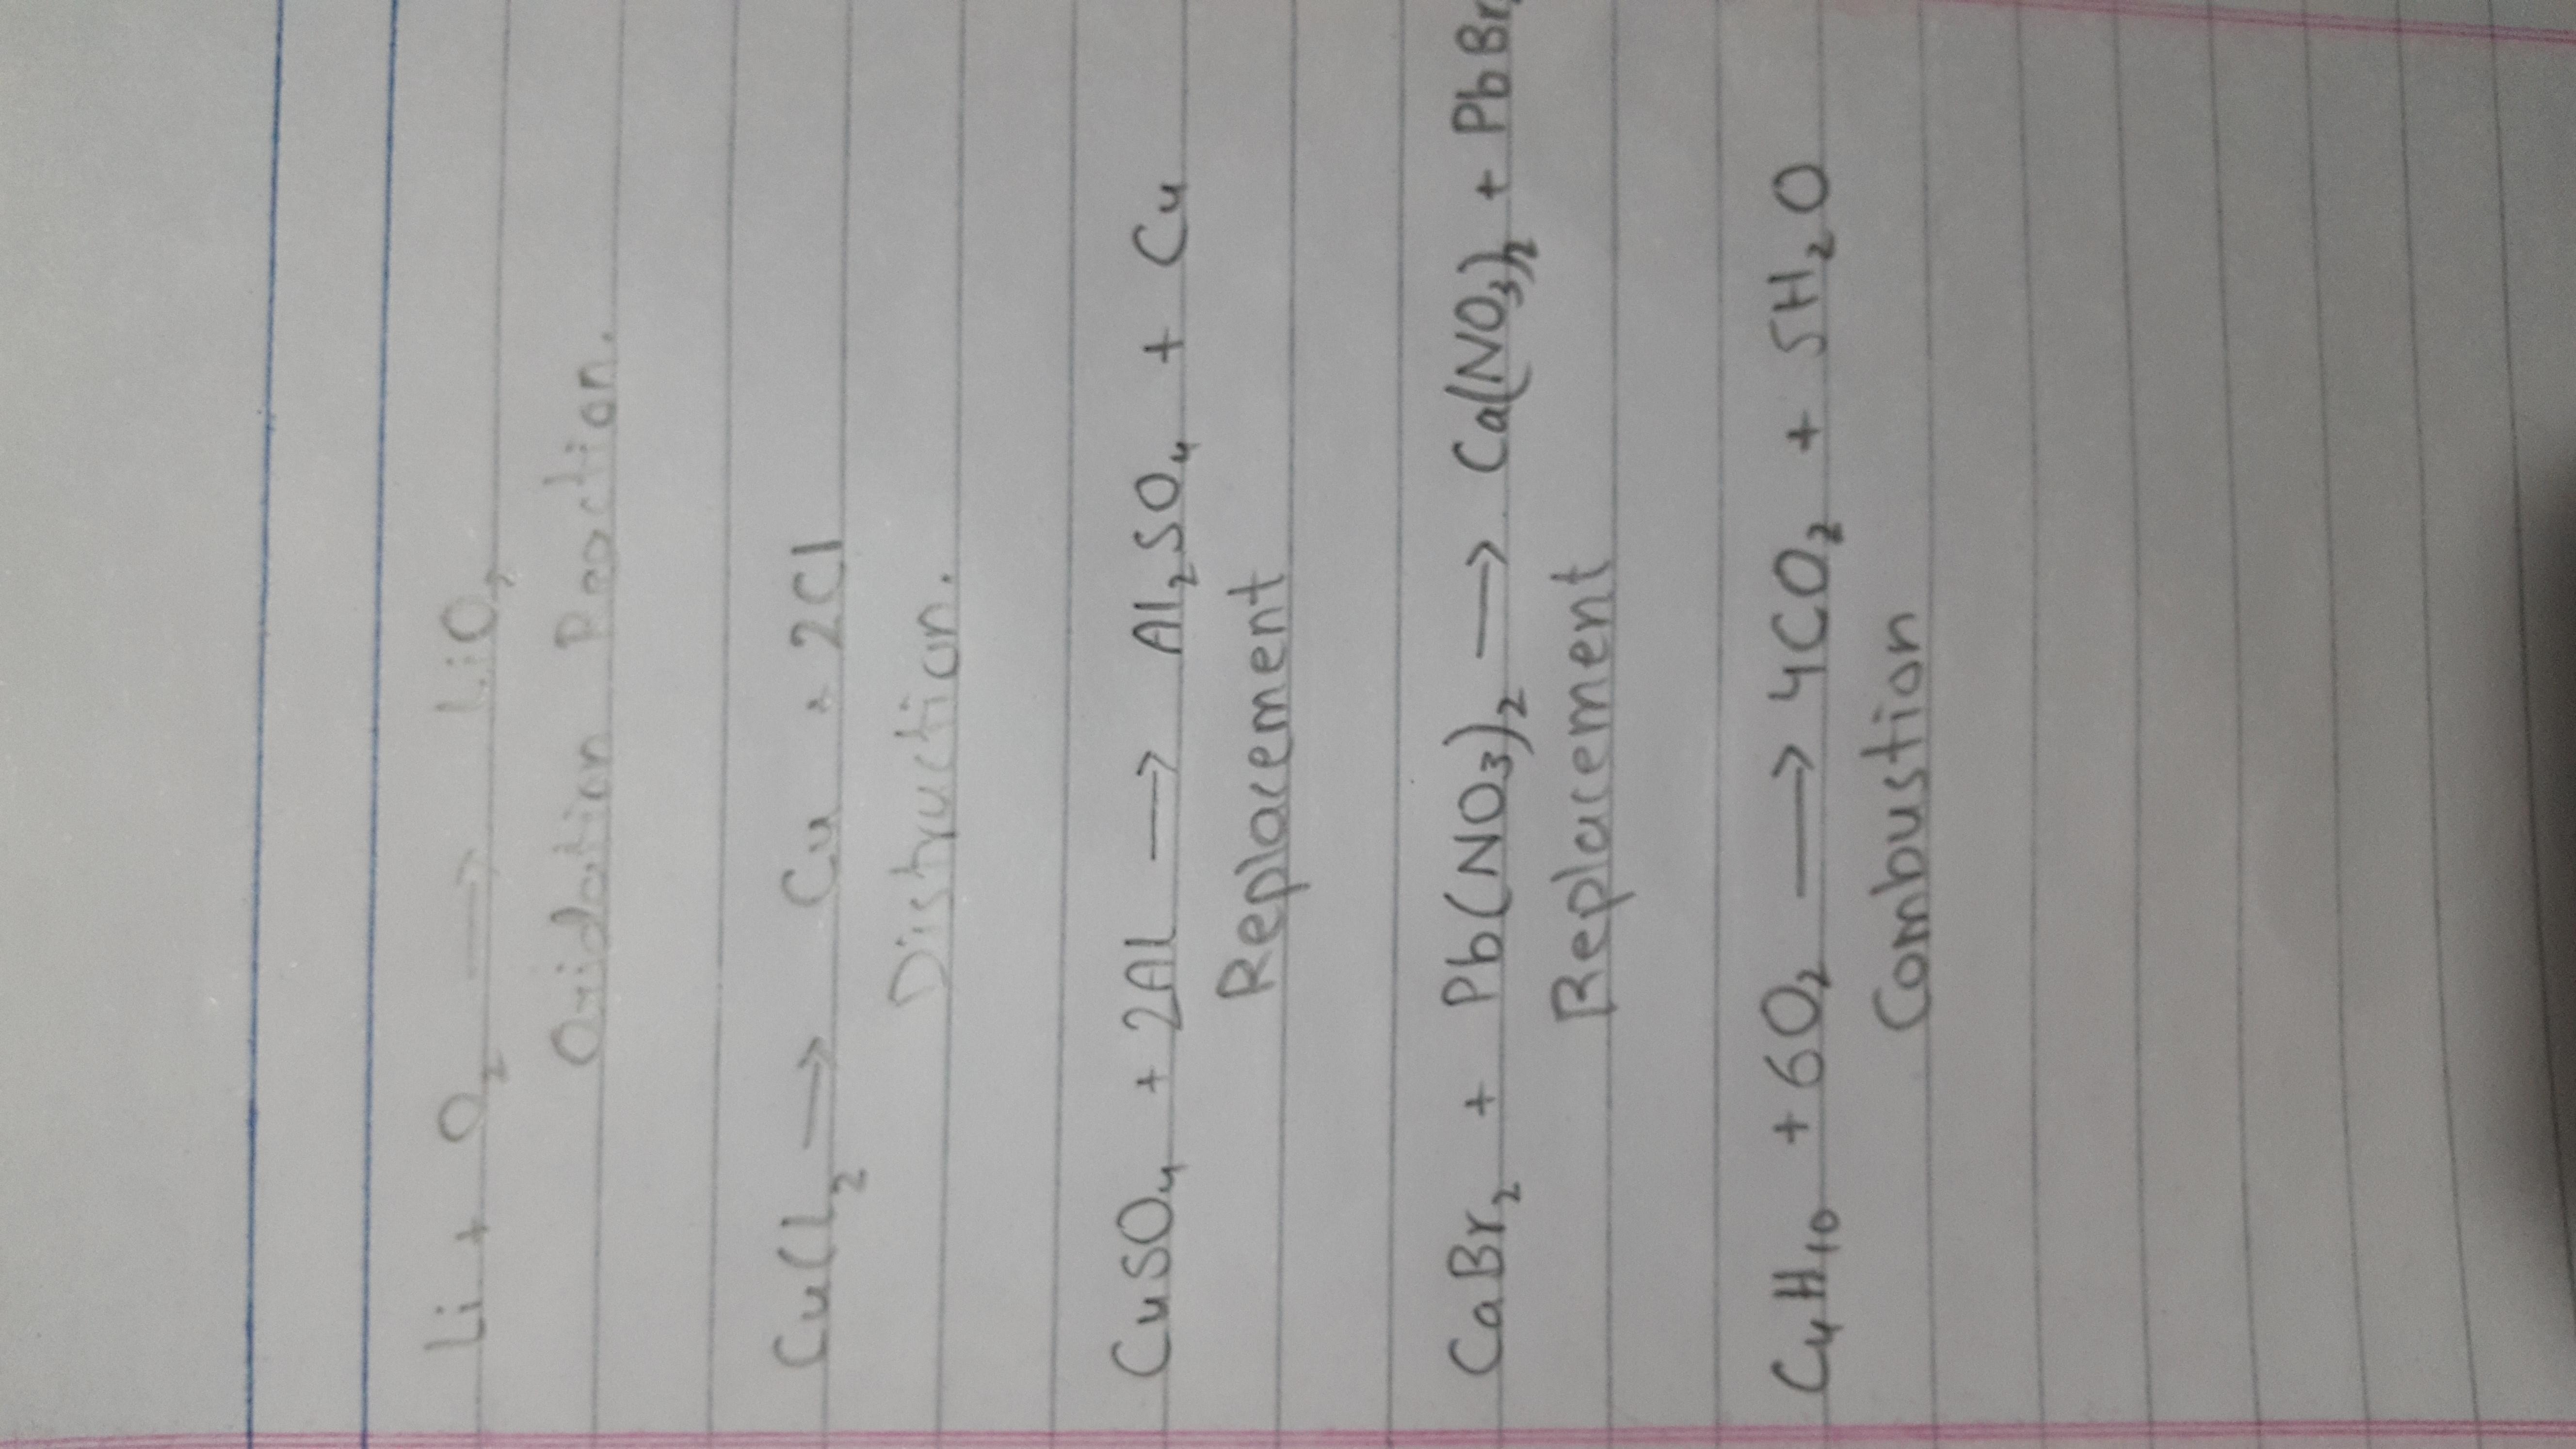 Li + O₂ → LiO₂
Oxidation Reaction.
CuCl₂ → Cu + 2Cl
Distruction.
CuSO₄ + 2Al → Al₂SO₄ + Cu
Replacement
CaBr₂ + Pb(NO₃)₂ → Ca(NO₃)₂ + PbBr₂
Replacement
C₄H₁₀ + 6O₂ → 4CO₂ + 5H₂O
Combustion